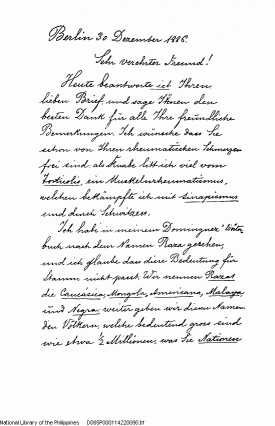 Berlin 30 Dezember 1886.
Sehr verehrter Freund!
Heute beantworte ich Ihren
lieben Brief und sage Ihnen den
besten Dank für all Ihre freundliche
Bemerkungen. Ich wünsche dass Sie
schon von Ihren rheumatischen Schmerzen
frei sind als Knabe litt ich viel vom
Torticolis, ein Muskelrheumatismus,
welchen bekämpfte ich mit Sinapismus
und durch Schwitzen.
Ich habe in meinem Dominguez' Wörter
buch nach dem Namen Raza gesehen,
und ich glaube dass diese Bedeutung für
Stamm nicht passt. Wir nennen Razas
die Caucásica, Mongola, Americana, Malaya,
und Negra weiter geben wir diese Namen
den Völkern, welche bedeutend gross sind
wie etwa ½ Millionen, was Sie Nationen
National Library of the Philippines
D095P000114220096.tif